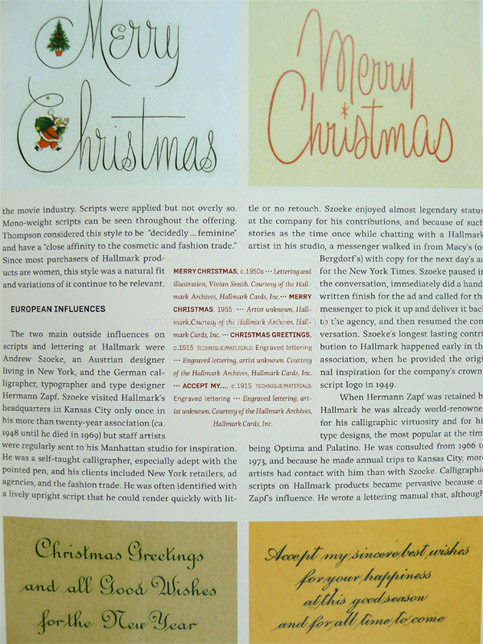 Merry
Christmas
Merry
Christmas
the movie industry. Scripts were applied but not overly so.
Mono-weight scripts can be seen throughout the offering.
Thompson considered this style to be "decidedly ... feminine"
and have a "close affinity to the cosmetic and fashion trade."
Since most purchasers of Hallmark prod-
ucts are women, this style was a natural fit
and variations of it continue to be relevant.
EUROPEAN INFLUENCES
The two main outside influences on
scripts and lettering at Hallmark were
Andrew Szoeke, an Austrian designer
living in New York, and the German cal-
ligrapher, typographer and type designer
Hermann Zapf. Szoeke visited Hallmark's
headquarters in Kansas City only once in
his more than twenty-year association (ca.
1948 until he died in 1969) but staff artists
were regularly sent to his Manhattan studio for inspiration.
He was a self-taught calligrapher, especially adept with the
pointed pen, and his clients included New York retailers, ad
agencies, and the fashion trade. He was often identified with
a lively upright script that he could render quickly with lit-
MERRY CHRISTMAS, c.1950s ··· Lettering and
illustration, Vivian Smith. Courtesy of the Hall-
mark Archives, Hallmark Cards, Inc. ··· MERRY
CHRISTMAS, 1955 ··· Artist unknown, Hall-
mark. Courtesy of the Hallmark Archives, Hall-
mark Cards, Inc. ··· CHRISTMAS GREETINGS,
c.1915 TECHNIQUE/MATERIALS: Engraved lettering
··· Engraved lettering, artist unknown. Courtesy
of the Hallmark Archives, Hallmark Cards, Inc.
··· ACCEPT MY..., c.1915 TECHNIQUE/MATERIALS:
Engraved lettering ··· Engraved lettering, art-
ist unknown. Courtesy of the Hallmark Archives,
Hallmark Cards, Inc.
tle or no retouch. Szoeke enjoyed almost legendary status
at the company for his contributions, and because of such
stories as the time once while chatting with a Hallmark
artist in his studio, a messenger walked in from Macy's (or
Bergdorf's) with copy for the next day's ad
for the New York Times. Szoeke paused in
the conversation, immediately did a hand-
written finish for the ad and called for the
messenger to pick it up and deliver it back
to the agency, and then resumed the con-
versation. Szoeke's longest lasting contri-
bution to Hallmark happened early in the
association, when he provided the origi-
nal inspiration for the company's crown
script logo in 1949.
When Hermann Zapf was retained by
Hallmark he was already world-renowned
for his calligraphic virtuosity and for his
type designs, the most popular at the time
being Optima and Palatino. He was consulted from 1966 to
1973, and because he made annual trips to Kansas City, more
artists had contact with him than with Szoeke. Calligraphic
scripts on Hallmark products became pervasive because of
Zapf's influence. He wrote a lettering manual that, although
Christmas Greetings
and all Good Wishes
for the New Year
Accept my sincere best wishes
for your happiness
at this good season
and for all time to come